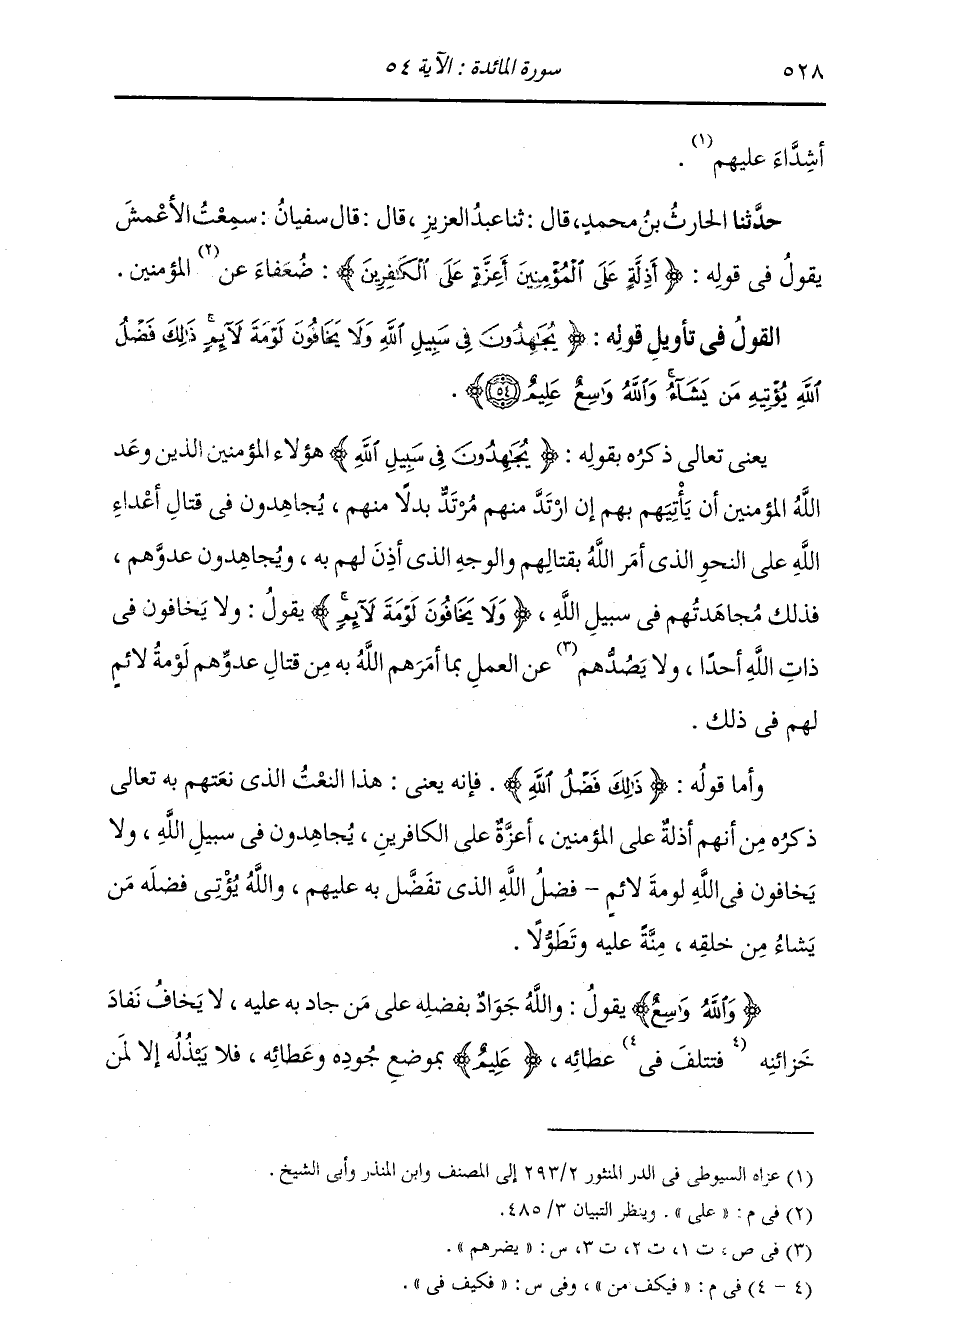 ٥٢٨ سورة المائدة : الآية ٥٤
أشِدَّاءَ عليهم(١) .
حدَّثنا الحارثُ بنُ محمدٍ، قال : ثنا عبدُ العزيزِ ، قال : قال سفيانُ : سمِعْتُ الأعْمشَ
يقولُ فى قولِه : ﴿ أَذِلَّةٍ عَلَى ٱلْمُؤْمِنِينَ أَعِزَّةٍ عَلَى ٱلْكَٰفِرِينَ ﴾ : ضُعَفاءَ عن(٢) المؤمنين .
القولُ فى تأويلِ قولِه : ﴿ يُجَٰهِدُونَ فِى سَبِيلِ ٱللَّهِ وَلَا يَخَافُونَ لَوْمَةَ لَآئِمٍۚ ذَٰلِكَ فَضْلُ
ٱللَّهِ يُؤْتِيهِ مَن يَشَآءُۚ وَٱللَّهُ وَٰسِعٌ عَلِيمٌ ٥٤ ﴾ .
يعنى تعالى ذكرُه بقولِه : ﴿ يُجَٰهِدُونَ فِى سَبِيلِ ٱللَّهِ ﴾ هؤلاء المؤمنين الذين وعَد
اللَّهُ المؤمنين أن يَأْتِيَهم بهم إن ارْتَدَّ منهم مُرْتَدٌّ بدلًا منهم ، يُجاهِدون فى قتالِ أعْداءِ
اللَّهِ على النحوِ الذى أمَر اللَّهُ بقتالِهم والوجهِ الذى أذِنَ لهم به ، ويُجاهِدون عدوَّهم ،
فذلك مُجاهَدتُهم فى سبيلِ اللَّهِ ، ﴿ وَلَا يَخَافُونَ لَوْمَةَ لَآئِمٍۚ ﴾ يقولُ : ولا يَخافون فى
ذاتِ اللَّهِ أحدًا ، ولا يَصُدُّهم(٣) عن العملِ بما أمَرَهم اللَّهُ به مِن قتالِ عدوِّهم لَوْمةُ لائمٍ
لهم فى ذلك .
وأما قولُه : ﴿ ذَٰلِكَ فَضْلُ ٱللَّهِ ﴾ . فإنه يعنى : هذا النعْتُ الذى نعَتهم به تعالى
ذكرُه مِن أنهم أذلةٌ على المؤمنين ، أعزَّةٌ على الكافرين ، يُجاهِدون فى سبيلِ اللَّهِ ، ولا
يَخافون فى اللَّهِ لومةَ لائمٍ - فضلُ اللَّهِ الذى تفَضَّل به عليهم ، واللَّهُ يُؤْتِى فضلَه مَن
يَشاءُ مِن خلقِه ، مِنَّةً عليه وتَطَوُّلًا .
﴿ وَٱللَّهُ وَٰسِعٌ ﴾ يقولُ : واللَّهُ جَوَادٌ بفضلِه على مَن جاد به عليه ، لا يَخافُ نَفادَ
خَزائنِه (٤ فتتلفَ فى ٤) عطائِه ، ﴿ عَلِيمٌ ﴾ بموضعِ جُودِه وعَطائِه ، فلا يَبْذُلُه إلا لمَن
(١) عزاه السيوطى فى الدر المنثور ٢٩٣/٢ إلى المصنف وابن المنذر وأبى الشيخ .
(٢) فى م : « على » . وينظر التبيان ٣/ ٤٨٥.
(٣) فى ص ، ت ١، ت ٢، ت ٣، س : « يضرهم » .
(٤ - ٤) فى م : « فيكف من » ، وفى س : « فكيف فى » .